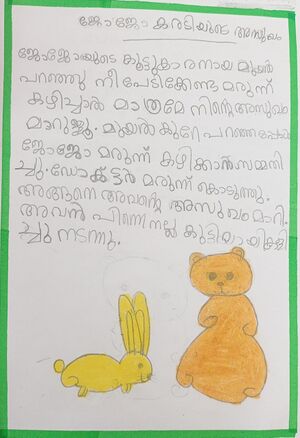 ജോജോ കരടിയുടെ അസുഖം
ജോജോയുടെ കൂട്ടുകാരനായ മുയൽ
പറഞ്ഞു നീ പേടിക്കേണ്ട മരുന്ന്
കഴിച്ചാൽ മാത്രമേ നിന്റെ അസുഖം
മാറുള്ളൂ. മുയൽ കുറേ പറഞ്ഞപ്പോൾ
ജോജോ മരുന്ന് കഴിക്കാൻ സമ്മതി
ച്ചു. ഡോക്ടർ മരുന്ന് കൊടുത്തു.
അങ്ങനെ അവന്റെ അസുഖം മാറി.
അവൻ പിന്നെ നല്ല കുട്ടിയായി
ച്ചു നടന്നു.